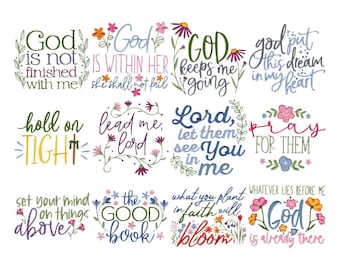 God
is not
finished
with me
God
IS WITHIN HER
she shall not fail
GOD
keeps me
going
god put
this dream
in my
heart
hold on
TIGHT
lead me,
lord
Lord,
let them
see
You
in me
pray
FOR THEM
set your mind
on things
above
the
GOOD
book
what you plant
in faith will
bloom
WHATEVER LIES BEFORE ME
God
is already there